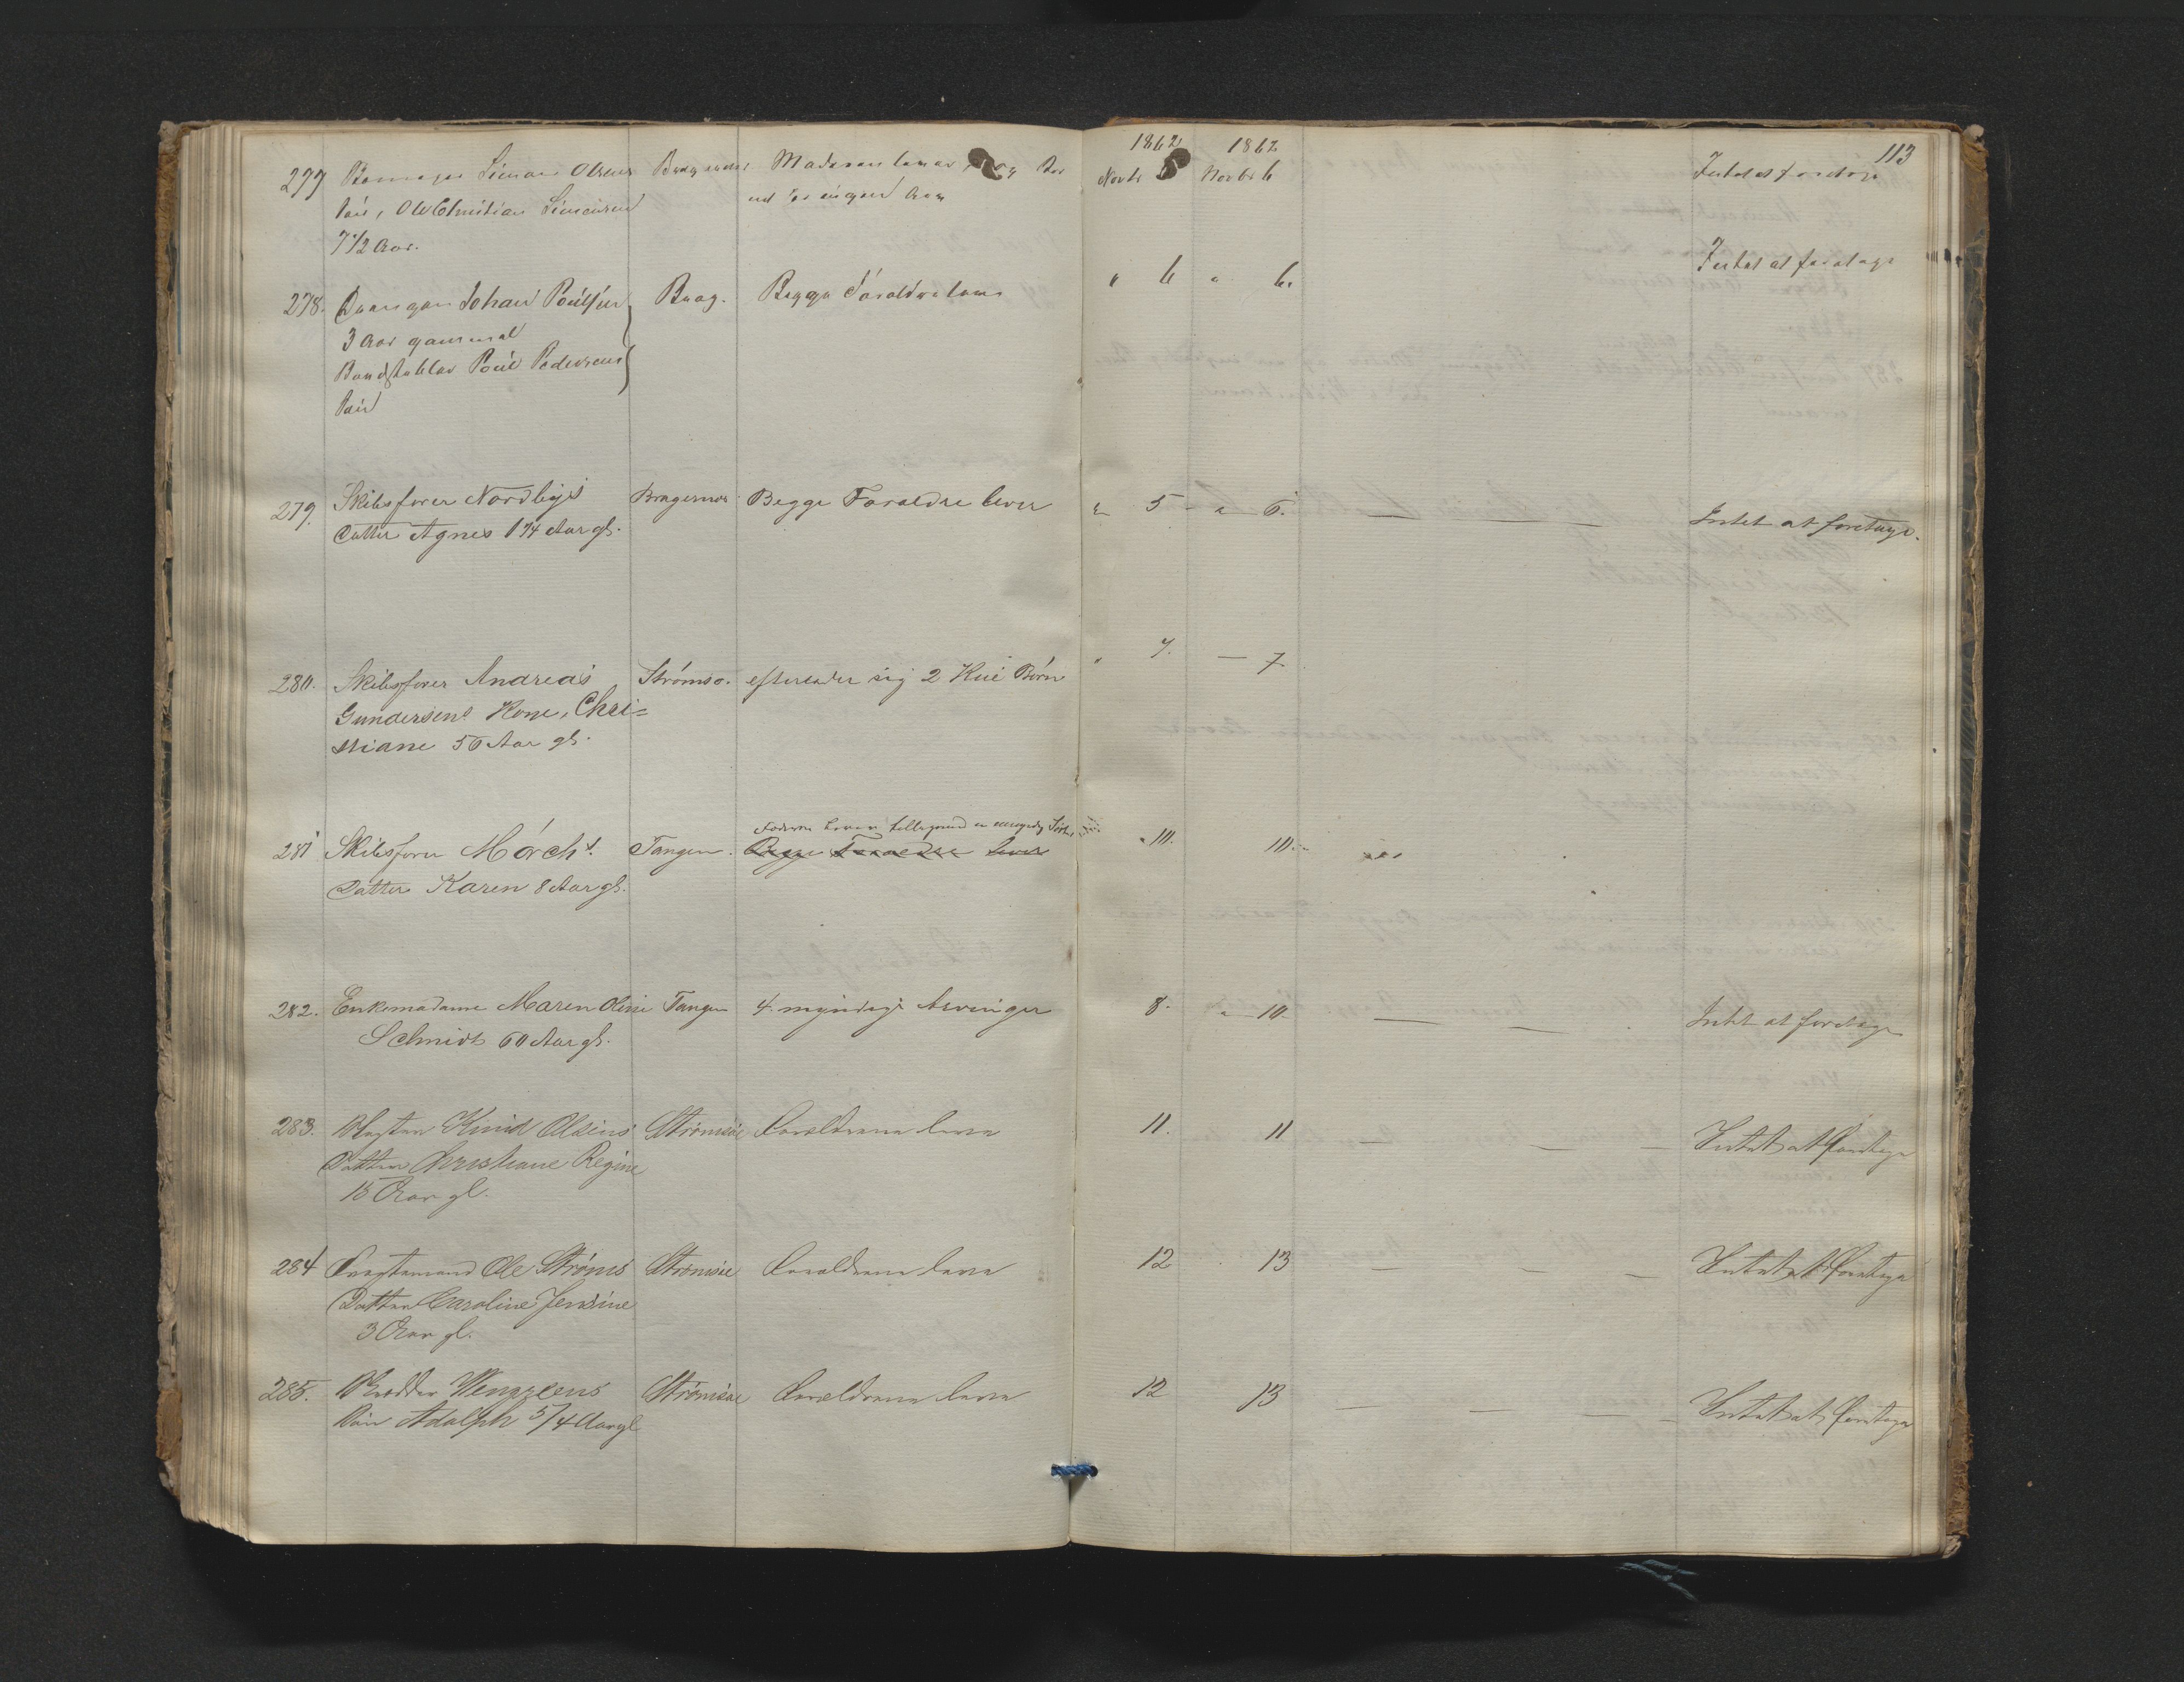 113
1862 1862
277 Simon Olsens Moderen lever og Novbr 5 Novbr 6 Intet at foretage
Søn, Ole Christian Simensen
7 1/2 Aar.
278. Drengen Johan Poulsen Brag. Begge Forældre leve " 6 " 6. Intet at foretage
3 Aar gammel
Poul Pedersens
Søn
279. Skibsfører Nordbyes Bragernes Begge Forældre lever " 5 - " 6. — — — Intet at foretage.
Datter Agnes 1 3/4 Aar gl.
280. Skibsfører Andreas Strømsø. efterlader sig 2 Børn " 7. — 7.
Gundersens Kone, Chri=
stiane 50 Aar gl.
281 Skibsfører Mørchs Tangen. Begge Forældre lever " 10. 10.
Datter Karen 8 Aar gl.
282. Enkemadame Maren Oline Tangen 4 myndige Arvinger 8. " 10. — — Intet at foretage
Schmidt 60 Aar gl.
283. Knud Olsens Strømsøe Forældrene leve 11. 11 — — — Intet at foretage
Datter Christiane Regine
15 Aar gl.
284 Ole Strøms Strømsøe Forældrene leve 12 13 — — — Intet at foretage
Datter Caroline Jensine
3 Aar gl.
285. Strømsøe Forældrene leve 12 13 — — — — Intet at foretage
Søn Adolph 5/4 Aar gl